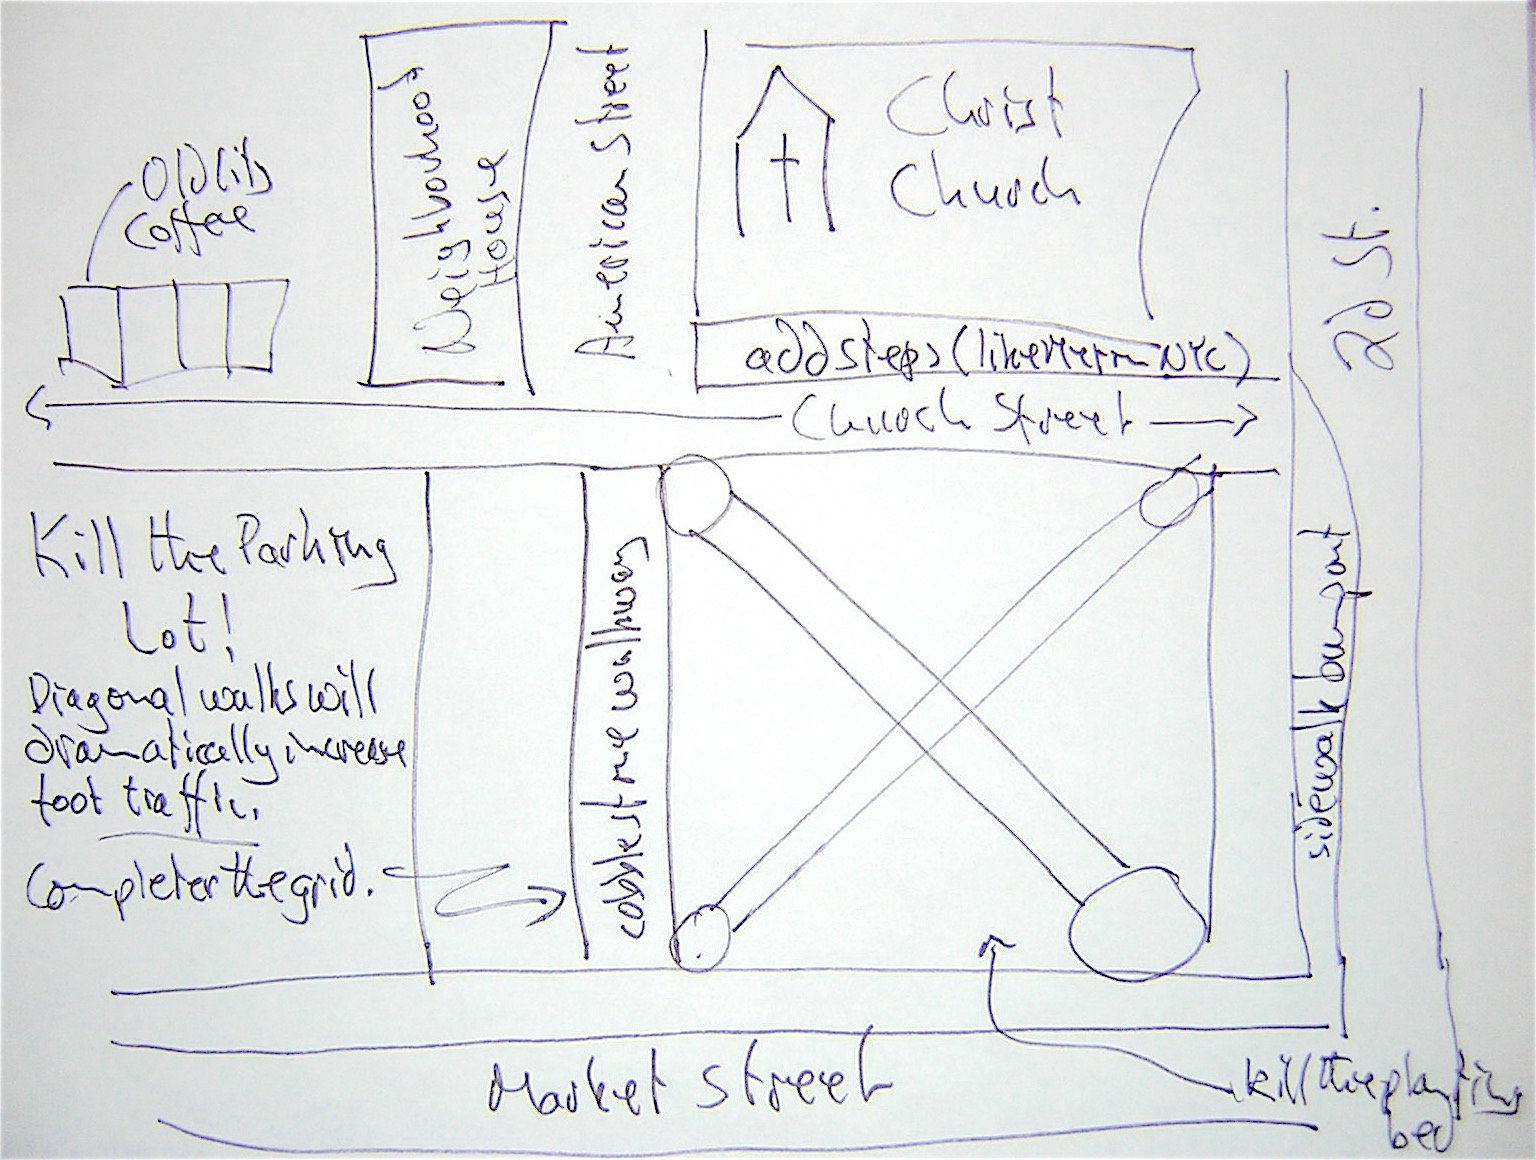 Old City
Coffee
Neighborhood
House
American Street
Christ
Church
2d St.
add steps (like the
NYC)
Church Street
Kill the Parking
Lot!
Diagonal walks will
dramatically increase
foot traffic.
Completer the grid.
cobblestone walkway
sidewalk bump out
Market Street
kill the planting
bed